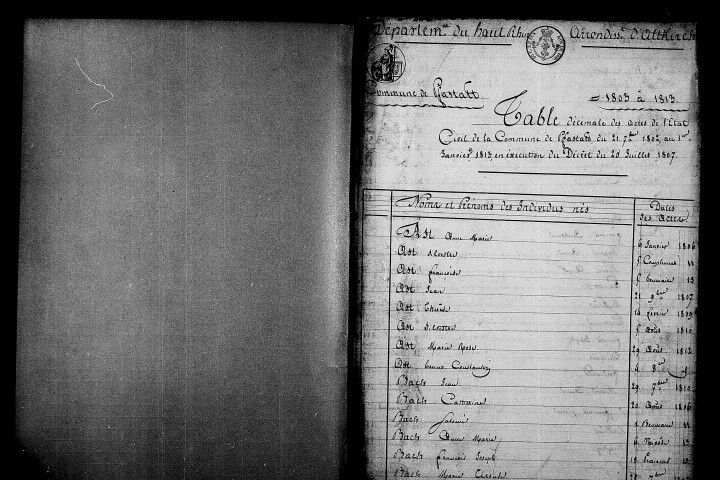 Départem.t du haut Rhin Arrondiss.t d'Altkirch
Commune de Pfastatt = 1803 à 1813
Table décennale des Actes de l'Etat
Civil de la Commune de Pfastatt du 21 7.bre 1802 au 1.er
Janvier 1813 en éxécution du Décret du 20 Juillet 1807.
Noms et Prénoms des Individus nés Dates des Actes
Ast Anne Marie 6 Janvier 1806
Ast 5 Complment. 11
Ast Françoise 13
Ast Jean 21 9.bre 1807
Ast Thérèse 14 février 1809
Ast 5 Août 1810
Ast Marie Rose 29 Août 1812
Ast 4 8.bre
Bach Jean 29 7.bre 1810
Bach Catherine 20 Août 1806
Bach Salomé 11
Bach Anne Marie 6 13
Bach François Joseph 13
Bach Marie Ursule